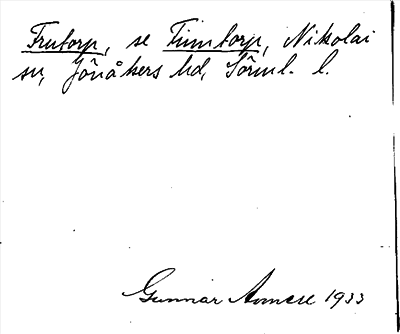 Frutorp, se Timtorp, Nikolai
sn, Jönåkers hd, Sörml. l.
Gunnar 1933